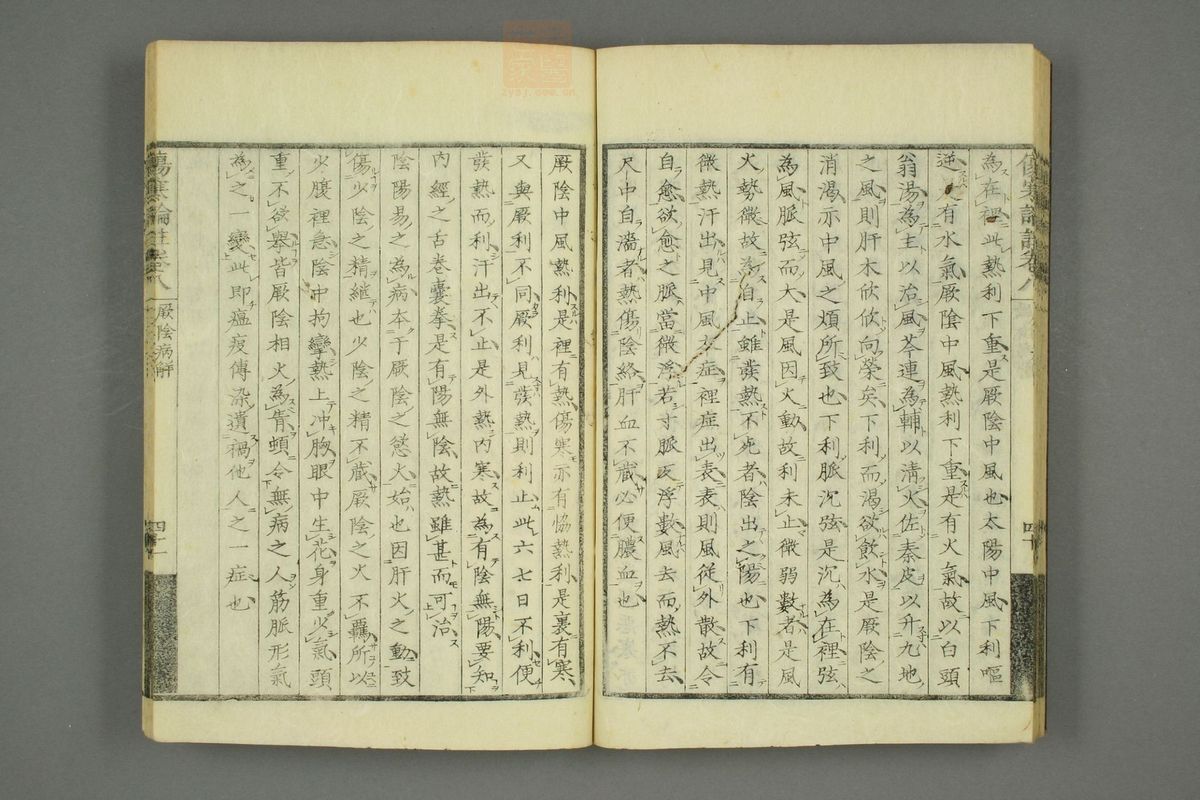 為在裡此熱利下重是厥陰中風也太陽中風下利嘔
逆是有水氣厥陰中風熱利下重是有火氣故以白頭
翁湯為主以治風芩連為輔以清火佐秦皮以升九地
之風則肝木欣欣向榮矣下利而渴欲飲水是厥陰之
消渴示中風之煩所致也下利脈沉弦是沉為在裡弦
為風脈弦而大是風因火動故利未止微弱數者是風
火勢微故為自止雖發熱不死者陰出之陽也下利有
微熱汗出見中風表症裡症出表表則風從外散故令
自愈欲愈之脈當微浮若寸脈反浮數風去而熱不去
尺中自濇者熱傷陰絡肝血不藏必便膿血也
厥陰中風熱利是裡有熱傷寒亦有恊熱利是裏有寒
又與厥利不同厥利見發熱則利止此六七日不利便
發熱而利汗出不止是外熱內寒故為有陰無陽要知
內經之舌卷囊拳是有陽無陰故熱雖甚而可治
陰陽易之為病本于厥陰之慾火始也因肝火之動致
傷少陰之精繼也少陰之精不藏厥陰之火不羈所以
少腹裡急陰中拘攣熱上冲胸眼中生花身重少氣頭
重不欲舉皆厥陰相火為眚頓令無病之人筋脈形氣
為之一變此即瘟疫傳染遺禍他人之一症也
傷寒論註卷八
厥陰病解
四十一
四十
zysj.com.cn